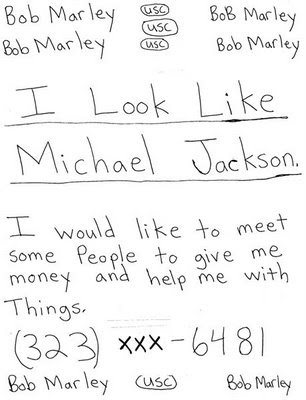 Bob Marley usc BoB Marley
usc
Bob Marley usc Bob Marley
I Look Like
Michael Jackson.
I would like to meet
some People to give me
money and help me with
Things.
(323) xxx-6481
Bob Marley usc Bob Marley